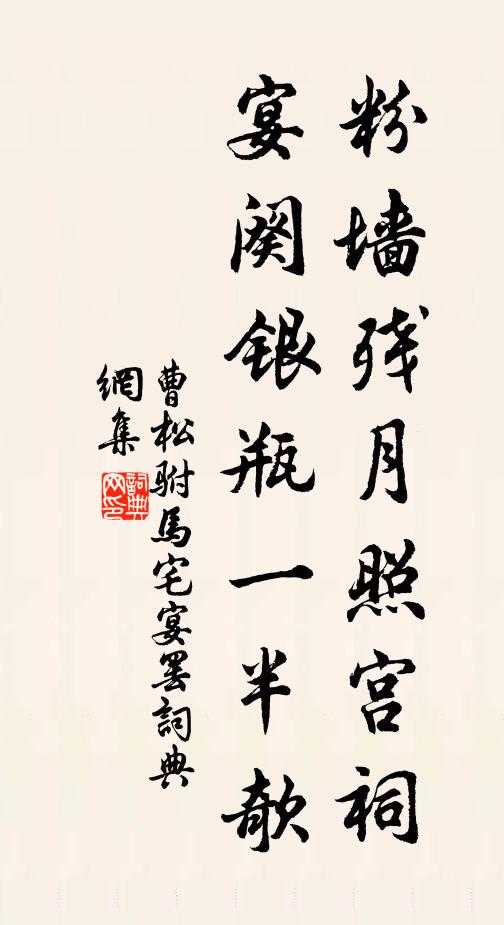 粉墙残月照宫祠
宴阕银瓶一半欹
曹松駙馬宅宴罢詞典
網集
詞典网印